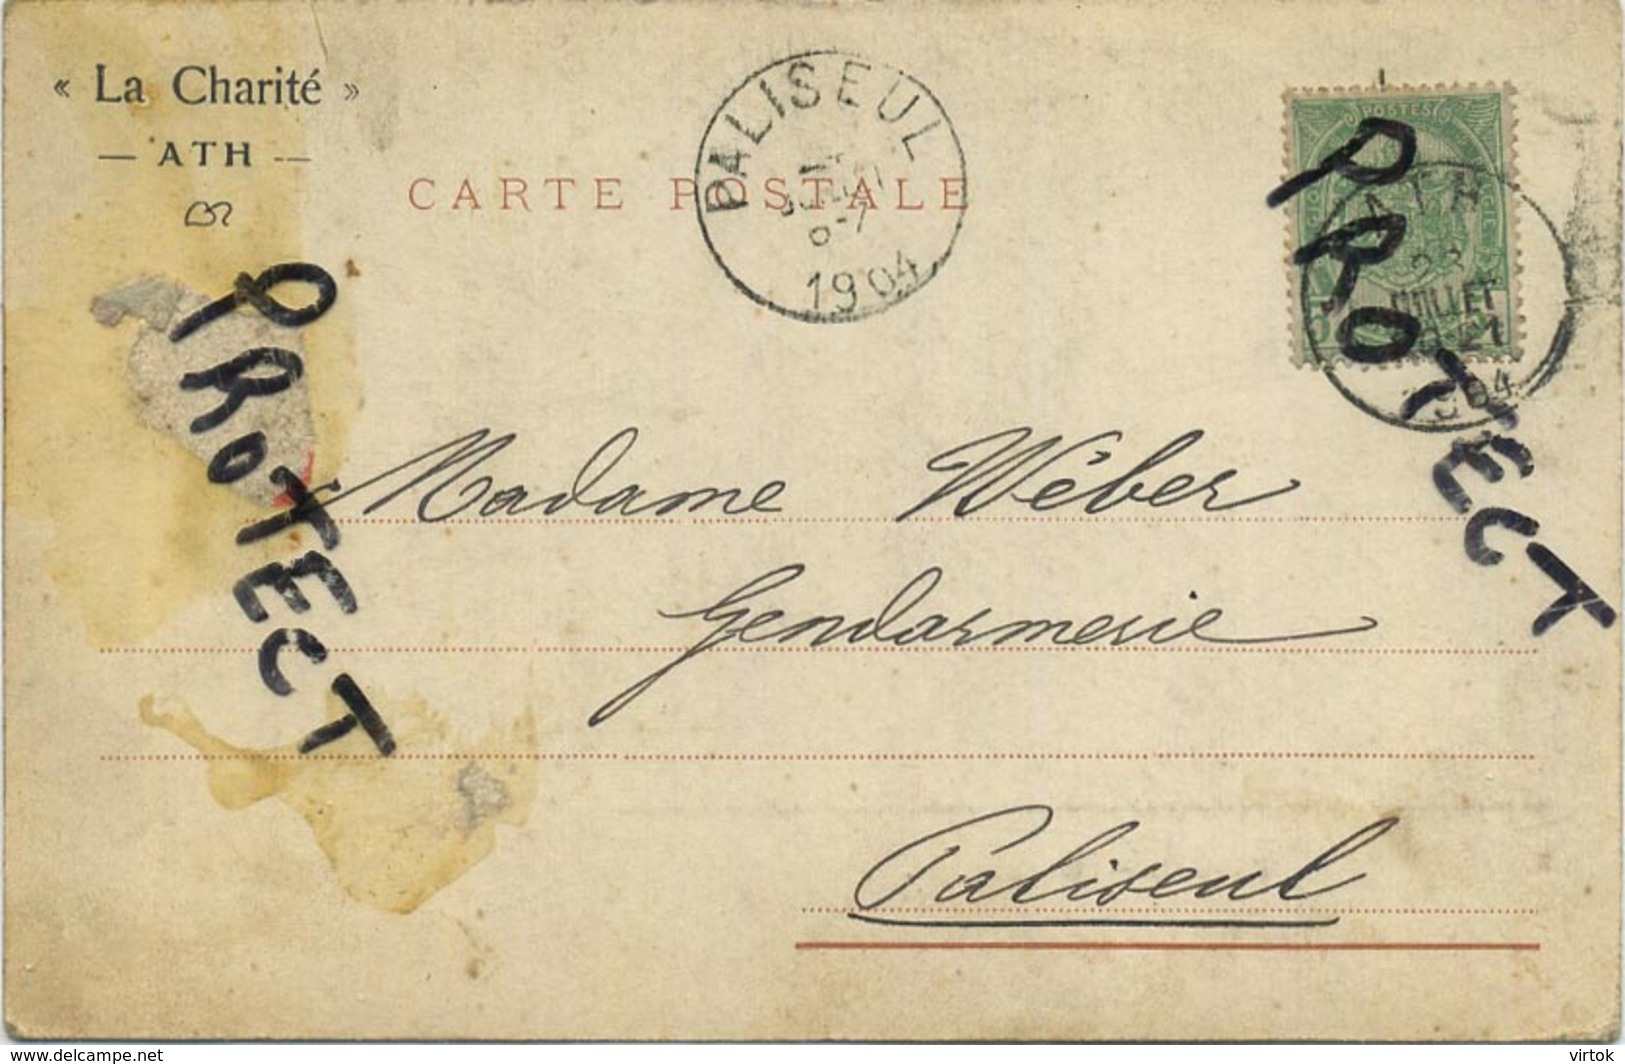 « La Charité »
— ATH —
CARTE POSTALE
PALISEUL
1904
POSTES
ATH
JUILLET
21
PROTECT
PROTECT
Madame Wéber
Gendarmerie
Paliseul
www.delcampe.net
virtok